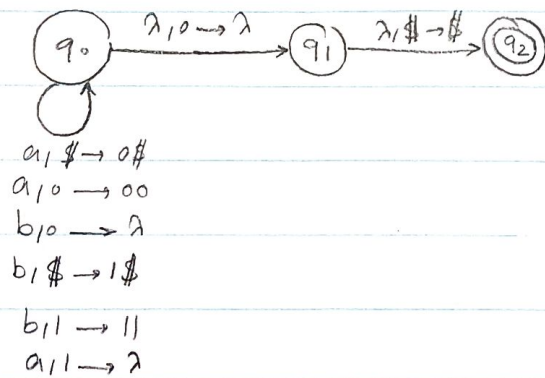 λ,0→λ
λ,$→$
q0
q1
q2
a,$→0$
a,0→00
b,0→λ
b,$→1$
b,1→11
a,1→λ